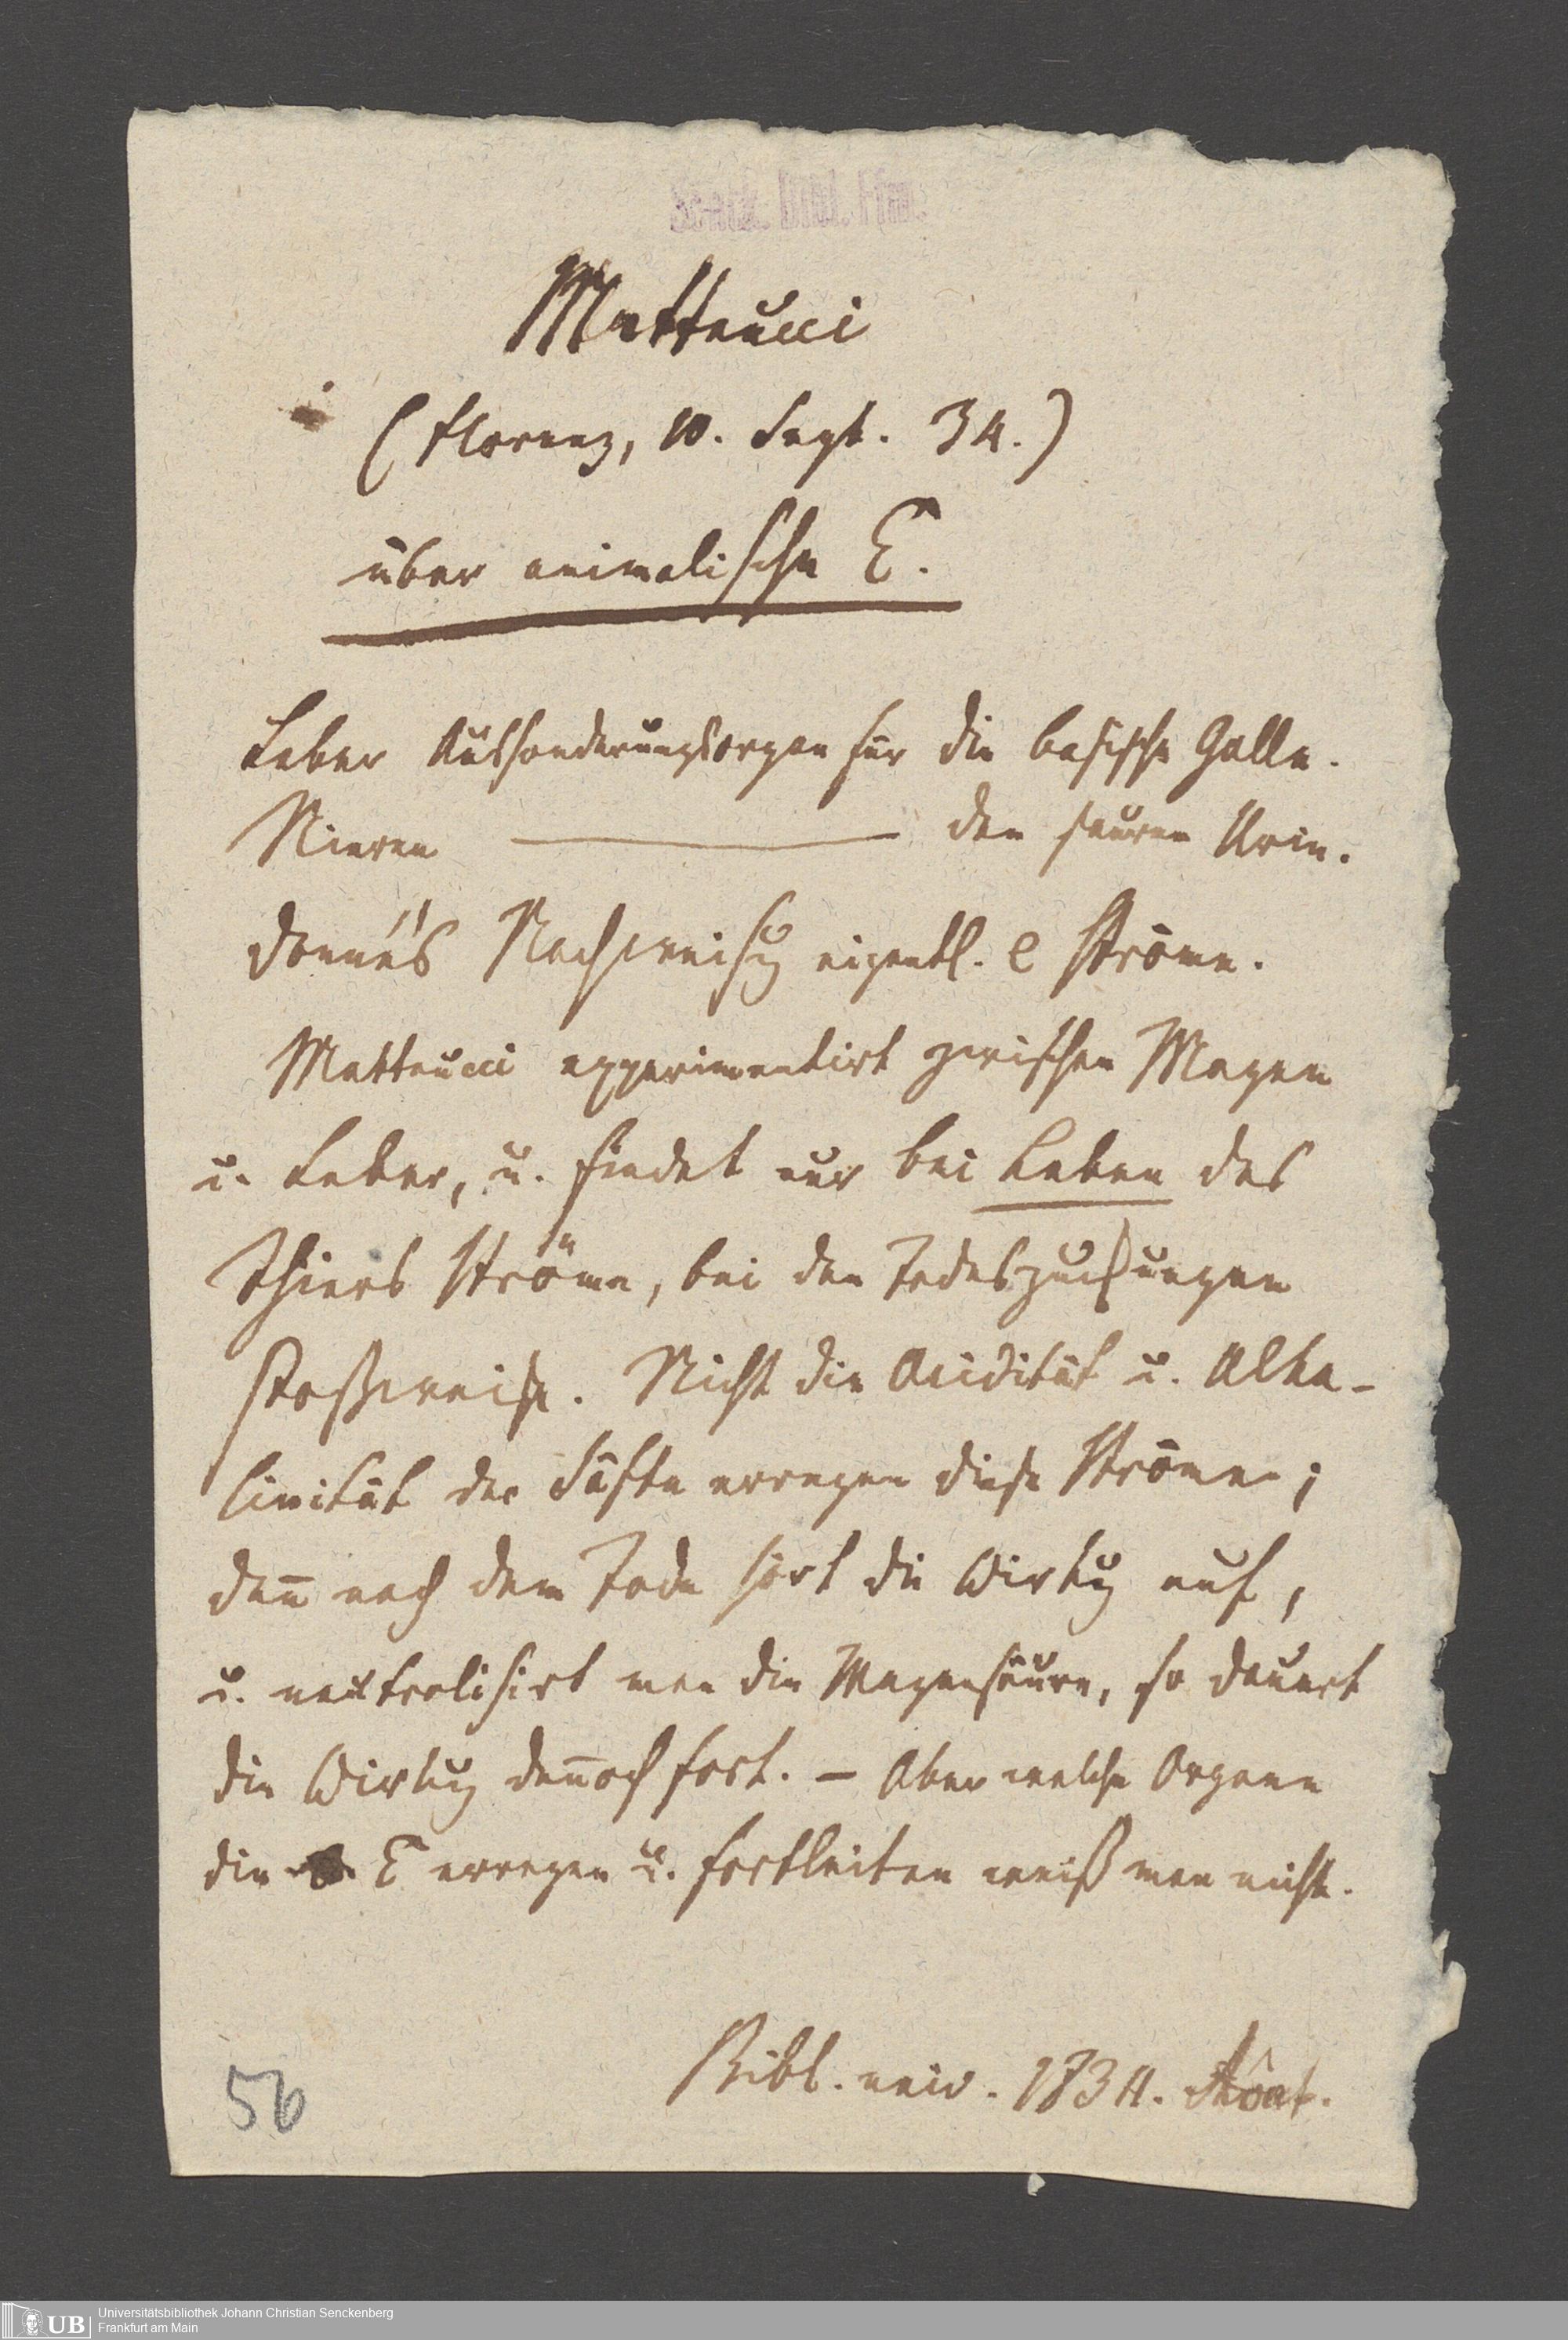 Stadtbibl. Ffm.
Matteucci
(Florenz, 10. Sept. 34.)
über animalische E.
Leber Aussonderungsorgan für die basische Galle.
Nieren ——— den sauren Urin.
Donné's Nachweisg eigentl. e Ströme.
Matteucci experimentirt zwischen Magen
u. Leber, u. findet nur bei Leben des
Thiers Ströme, bei den Todeszuckungen
stoßweise. Nicht die Acidität u. Alka-
linität der Säfte erregen diese Ströme;
den̄ nach dem Tode hört die Wirkg auf,
u. neutralisirt man die Magensäure, so dauert
die Wirkg den̄och fort. – Aber welche Organe
die E erregen u. fortleiten weiß man nicht.
Bibl. univ. 1834. Août.
56
UB
Universitätsbibliothek Johann Christian Senckenberg
Frankfurt am Main